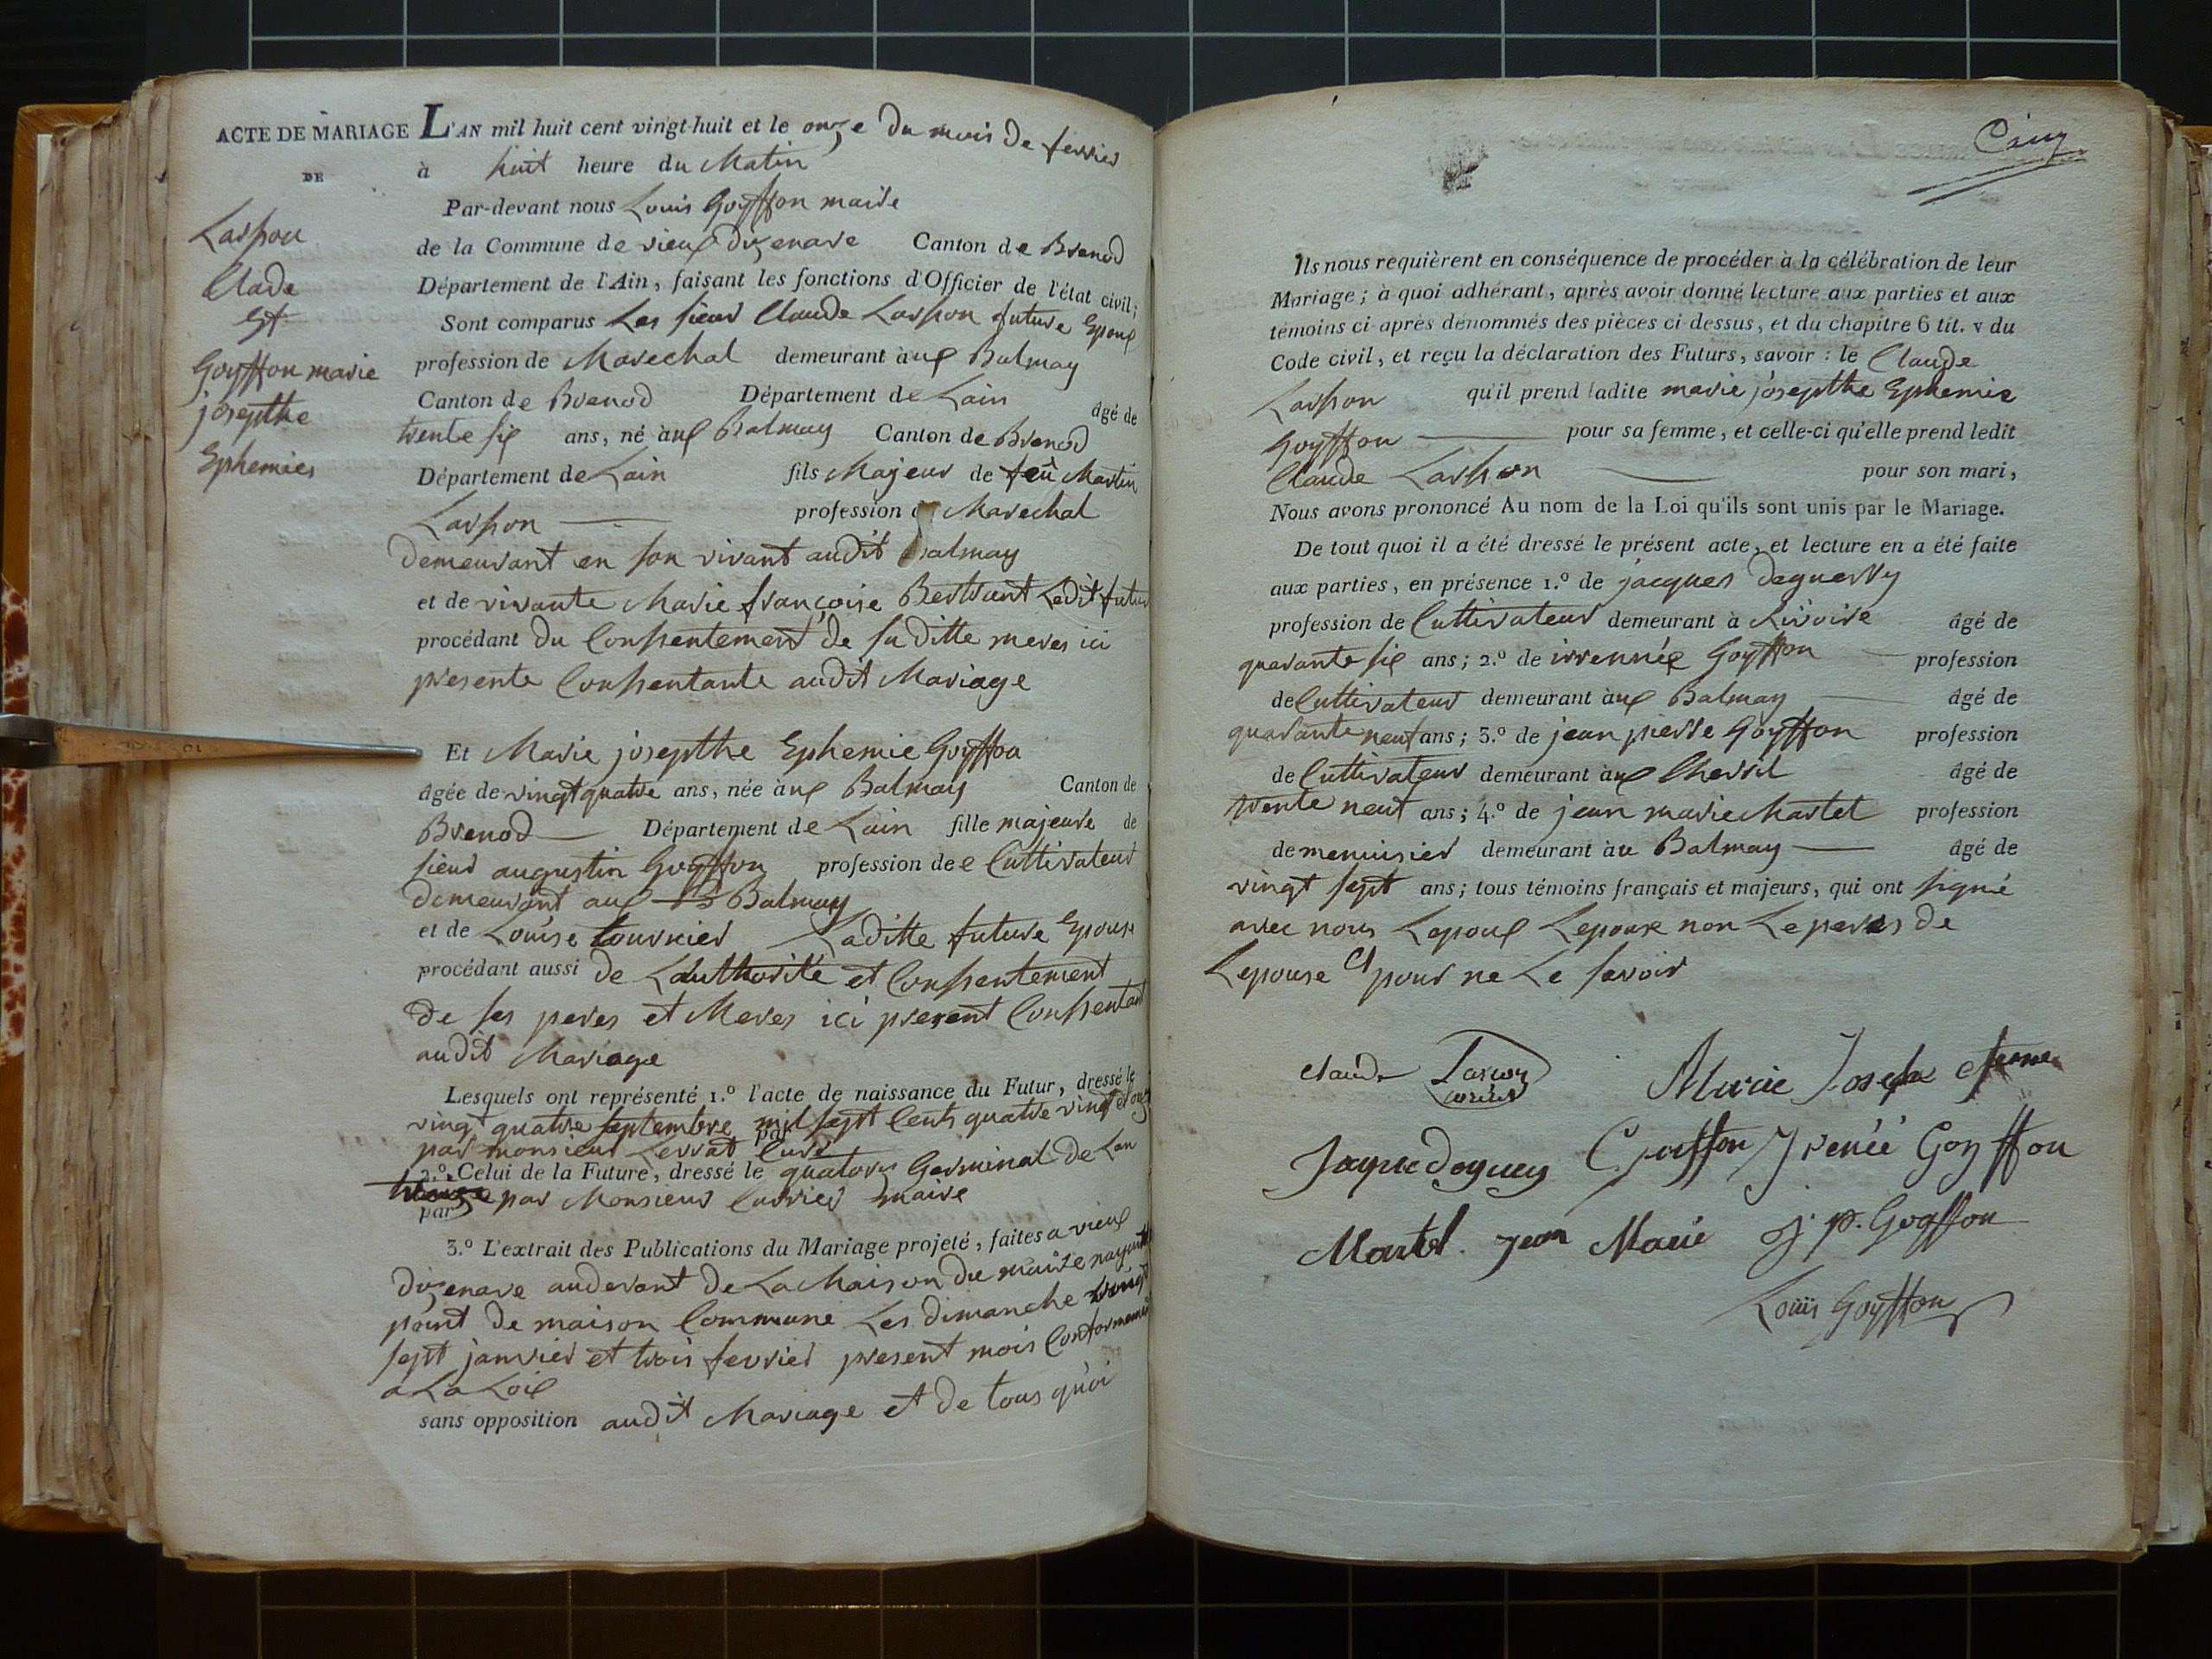 ACTE DE MARIAGE
DE
Larpon
Clade
Et
Goyffon marie
josepthe
Ephemies
L'AN mil huit cent vingt-huit et le onze du mois de fevrier
à huit heure du Matin
Par-devant nous Louis Goyffon maire
de la Commune de vieux dizenave Canton de Brenod
Département de l'Ain, faisant les fonctions d'Officier de l'état civil;
Sont comparus Les sieur Claude Larpon future Epoux
profession de Marechal demeurant àux Balmay
Canton de Brenod Département de Lain âgé de
trente six ans, né àux Balmay Canton de Brenod
Département de Lain fils Majeur de feû Martin
Larpon profession Marechal
demeurant en son vivant audit Balmay
et de vivante Marie françoise Bertrant Ledit futur
procédant du Consentement de saditte meres ici
presente Consentante audit Mariage
Et Marie josepthe Ephemie Goyffon
âgée de vingt quatre ans, née àux Balmay Canton de
Brenod Département de Lain fille majeure de
sieur augustin Goyffon profession dee Cultivateur
demeurant aux Balmay
et de Louise tournier Laditte future Epouse
procédant aussi de Lauthorité et Consentement
de ses peres et Meres ici present Consentant
audit Mariage
Lesquels ont représenté 1.º l'acte de naissance du Futur, dressé le
vingt quatre septembre mil sept Cents quatre vingt et onze
par monsieur Curé
par
2.º Celui de la Future, dressé le quatorze Germinal de Lan
par par Monsieur Carrier maire
3.º L'extrait des Publications du Mariage projeté, faites a vieux
dizenave audevant de La Maison du maire nayant
point de maison Commune Les dimanche vingt
sept janvier et trois fevrier present mois Conformement
a La Loix
sans opposition audit Mariage et de tous quoi
Cinq
Ils nous requièrent en conséquence de procéder à la célébration de leur
Mariage; à quoi adhérant, après avoir donné lecture aux parties et aux
témoins ci-après dénommés des pièces ci-dessus, et du chapitre 6 tit. v du
Code civil, et reçu la déclaration des Futurs, savoir : le Claude
Larpon qu'il prend ladite marie josepthe Ephemie
Goyffon pour sa femme, et celle-ci qu'elle prend ledit
Claude Larpon pour son mari,
Nous avons prononcé Au nom de la Loi qu'ils sont unis par le Mariage.
De tout quoi il a été dressé le présent acte, et lecture en a été faite
aux parties, en présence 1.º de jacques deguerry
profession de Cultivateur demeurant à Rivoire âgé de
quarante six ans; 2.º de irrennée Goyffon profession
de Cultivateur demeurant àux Balmay âgé de
quarante neuf ans; 3.º de jean pierre Goyffon profession
de Cultivateur demeurant àux Chevril âgé de
trente neuf ans; 4.º de jean marie Martel profession
de menuisier demeurant àu Balmay âgé de
vingt sept ans; tous témoins français et majeurs, qui ont signé
avec nous Lepoux Lepouse non Le peres de
Lepouse pour ne Le savoir
claude Marie Josephe
Goiffon Irénéé Goyffon
Martel. jean Marié j. p. Goyffon
Loüis Goyffon